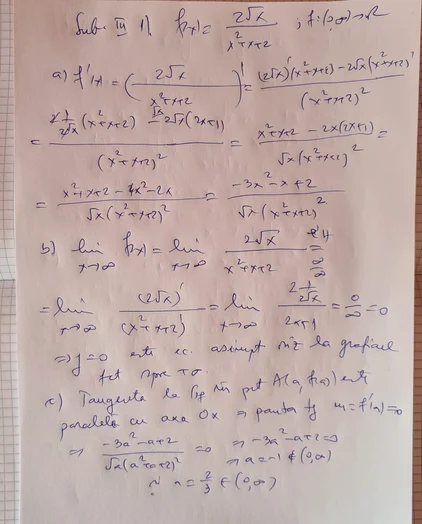 Sub. III 1) f(x) = 2√x / (x²+x+2) ; f:(0,∞)→R
a) f'(x) = (2√x / (x²+x+2))' = ((2√x)'(x²+x+2) - 2√x(x²+x+2)') / (x²+x+2)²
= (2 1/(2√x) (x²+x+2) - 2√x(2x+1)) / (x²+x+2)² = (x²+x+2 - 2x(2x+1)) / (√x(x²+x+2)²) =
= (x²+x+2-4x²-2x) / (√x(x²+x+2)²) = (-3x²-x+2) / (√x(x²+x+2)²)
b) lim x→∞ f(x) = lim x→∞ 2√x / (x²+x+2) = l'H ∞/∞
= lim x→∞ (2√x)' / (x²+x+2)' = lim x→∞ (2 1/(2√x)) / (2x+1) = 0/∞ = 0
⇒ y=0 este ec. asimpt oriz la graficul
fct spre +∞.
c) Tangenta la Gf în pct A(a, f(a)) este
paralelă cu axa Ox ⇒ panta tg m=f'(a)=0
⇒ (-3a²-a+2) / (√a(a²+a+2)²) = 0 ⇒ -3a²-a+2=0
⇒ a=-1 ∉ (0,∞)
a = 2/3 ∈ (0,∞)